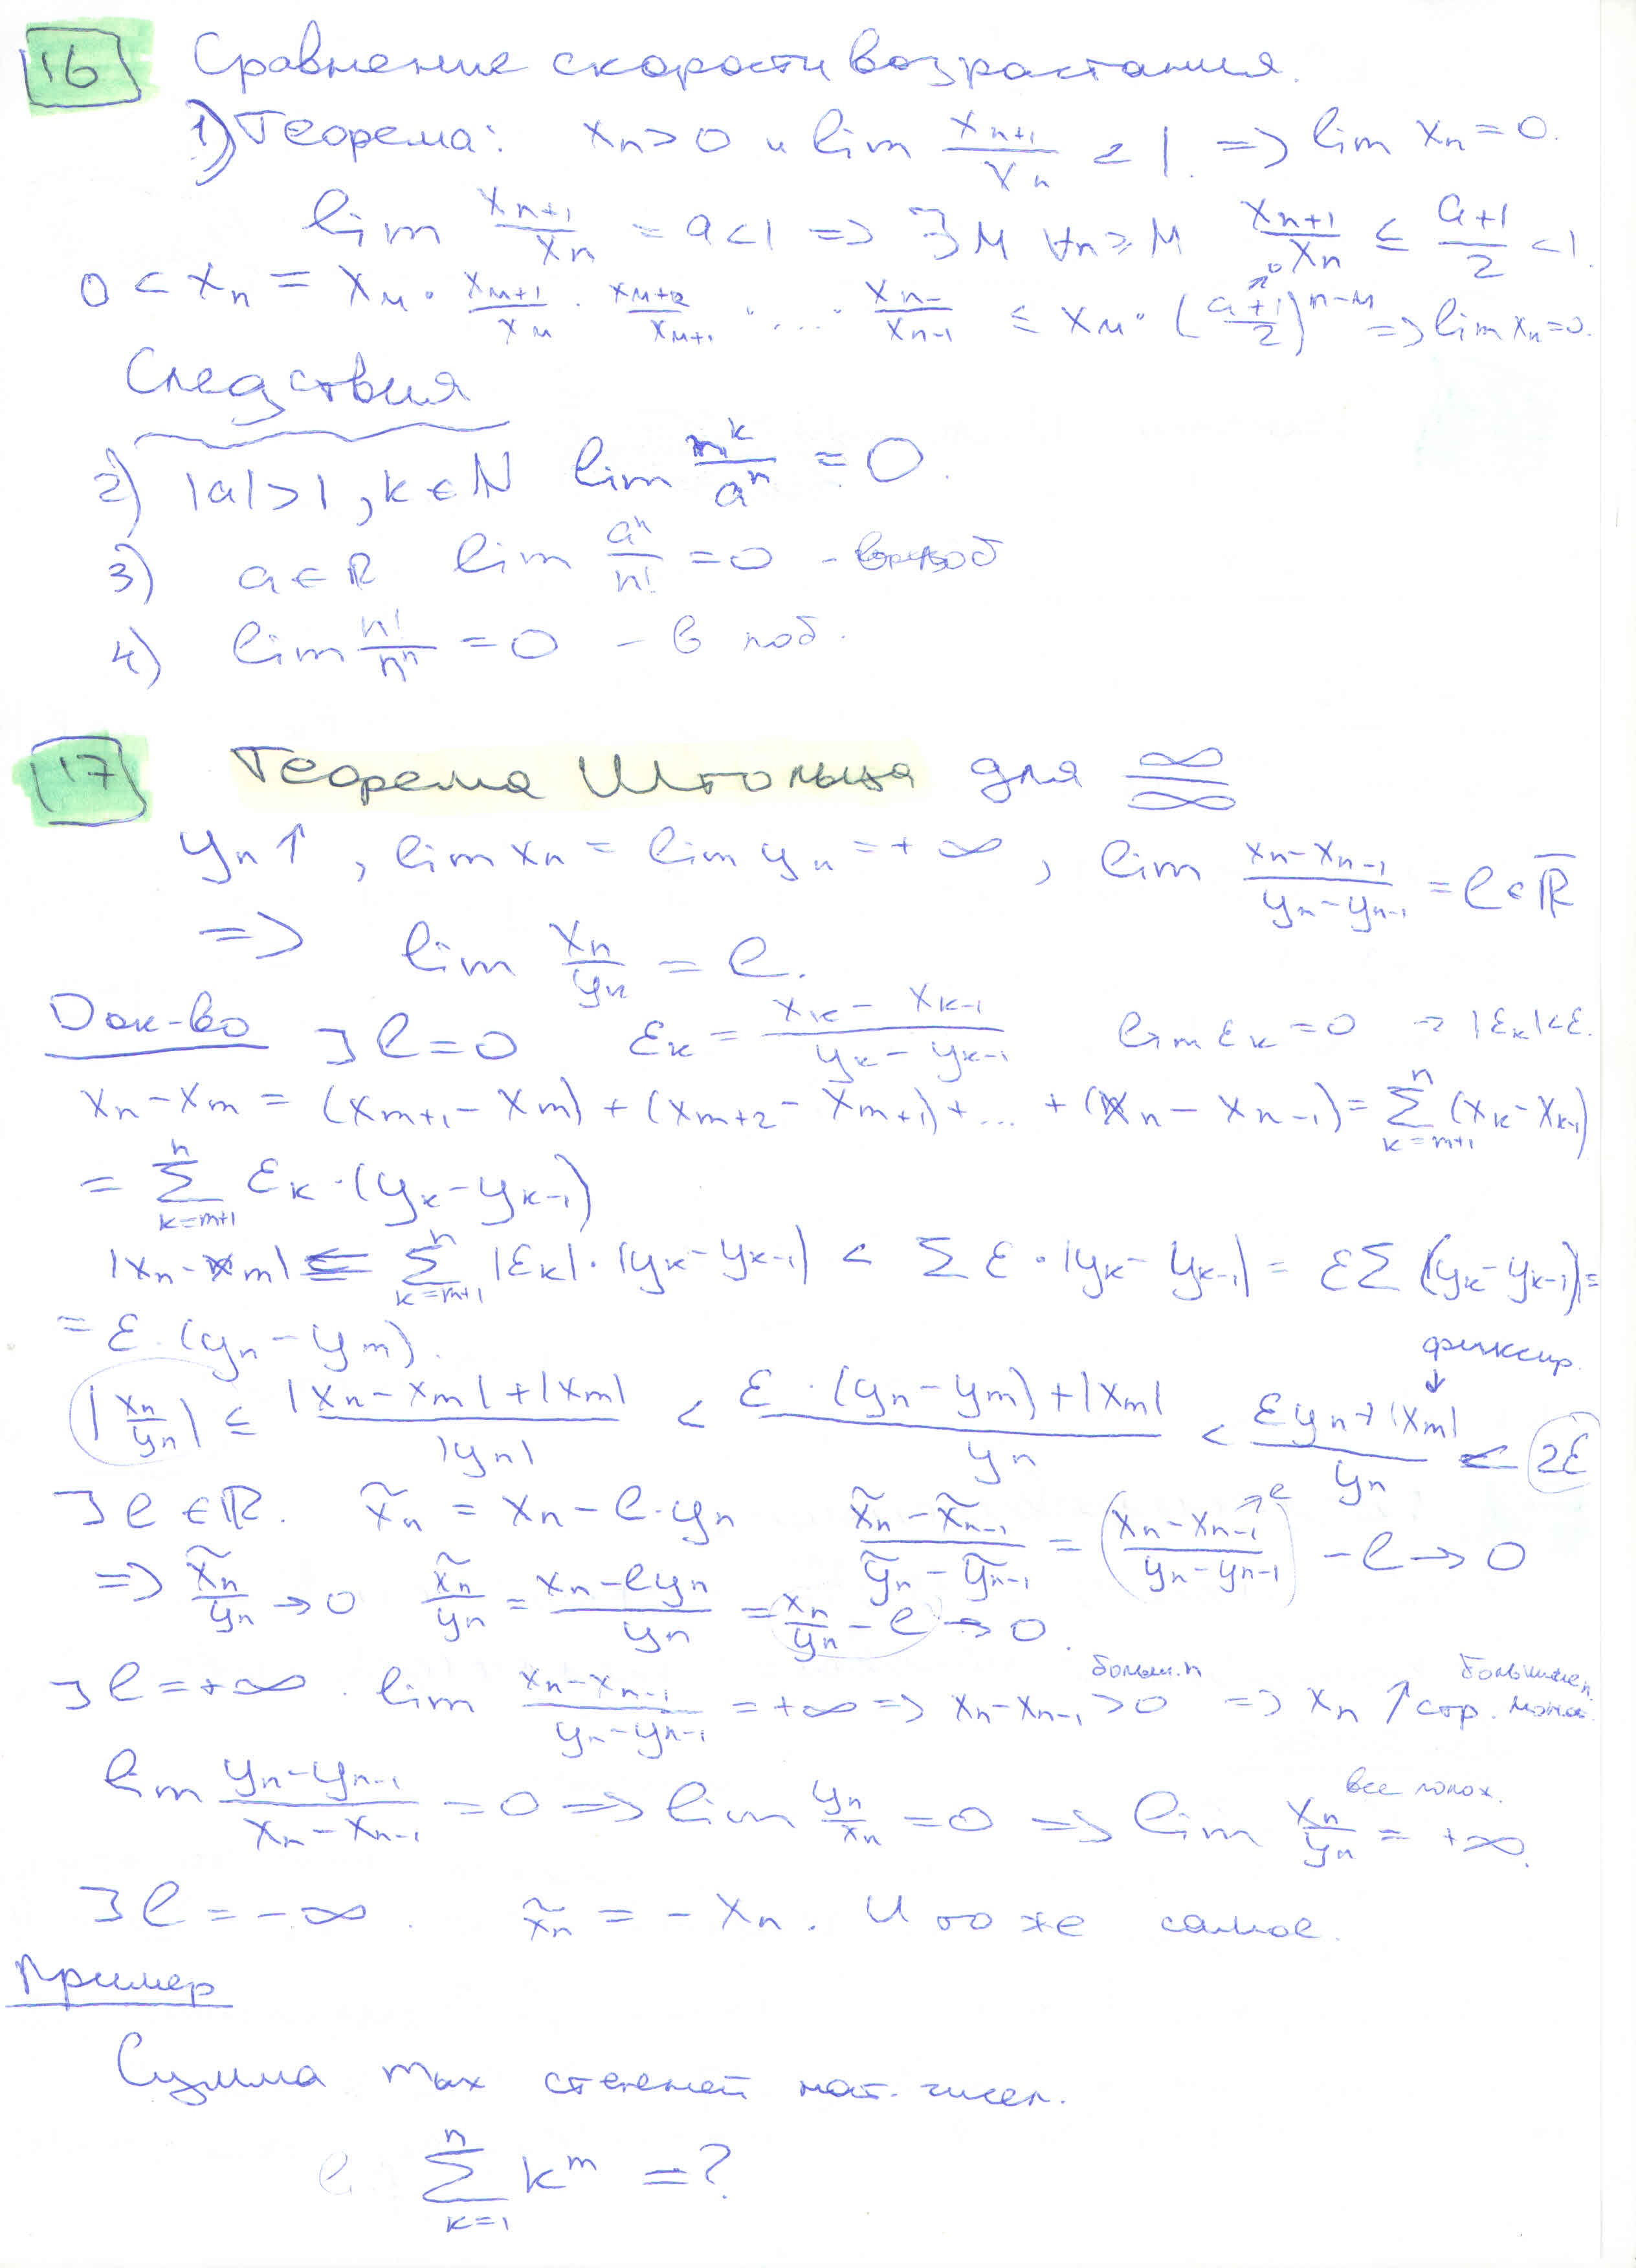 16 Сравнение скорости возрастания.
1) Теорема: xₙ>0 и lim xₙ₊₁/xₙ < 1 => lim xₙ = 0.
lim xₙ₊₁/xₙ = a<1 => ∃ M ∀n≥M xₙ₊₁/xₙ ≤ (a+1)/2 <1.
0 < xₙ = x_M · x_{M+1}/x_M · x_{M+2}/x_{M+1} · .... · xₙ/xₙ₋₁ ≤ x_M · ((a+1)/2)^{n-M} ↗0 => lim xₙ=0.
Следствия
2) |a|>1, k∈ℕ lim n^k/a^n = 0.
3) a∈ℝ lim a^n/n! = 0 -
4) lim n!/n^n = 0 - в
17 Теорема Штольца для ∞/∞
yₙ↑, lim xₙ = lim yₙ = +∞, lim (xₙ-xₙ₋₁)/(yₙ-yₙ₋₁) = l ∈ ℝ̅
=> lim xₙ/yₙ = l.
Док-во ∃ l=0 ε_k = (x_k - x_{k-1})/(y_k - y_{k-1}) lim ε_k = 0 → |ε_k|<ε.
xₙ-x_m = (x_{m+1}-x_m)+(x_{m+2}-x_{m+1})+... +(xₙ-xₙ₋₁) = Σ_{k=m+1}^{n} (x_k-x_{k-1})
= Σ_{k=m+1}^{n} ε_k·(y_k-y_{k-1})
|xₙ-x_m| ≤ Σ_{k=m+1}^{n} |ε_k|·|y_k-y_{k-1}| < Σ ε·|y_k-y_{k-1}| = εΣ (y_k-y_{k-1}) =
= ε·(yₙ-y_m).
фиксир.
↓
|xₙ/yₙ| ≤ (|xₙ-x_m|+|x_m|)/|yₙ| < (ε·(yₙ-y_m)+|x_m|)/yₙ < (εyₙ+|x_m|)/yₙ < 2ε
∃ l∈ℝ. x̃ₙ = xₙ-l·yₙ (x̃ₙ-x̃ₙ₋₁)/(ỹₙ-ỹₙ₋₁) = ((xₙ-xₙ₋₁)/(yₙ-yₙ₋₁)) ↗l - l → 0
=> x̃ₙ/yₙ → 0 x̃ₙ/yₙ = (xₙ-lyₙ)/yₙ = xₙ/yₙ - l → 0.
∃ l=+∞. lim (xₙ-xₙ₋₁)/(yₙ-yₙ₋₁) = +∞ => xₙ-xₙ₋₁ >0 больш. n => xₙ ↑ стр.
lim (yₙ-yₙ₋₁)/(xₙ-xₙ₋₁) = 0 => lim yₙ/xₙ = 0 => lim xₙ/yₙ = +∞. все полож.
∃ l=-∞. x̃ₙ = -xₙ. И то же самое.
Пример
Сумма mых степеней нат. чисел.
Σ_{k=1}^{n} k^m = ?